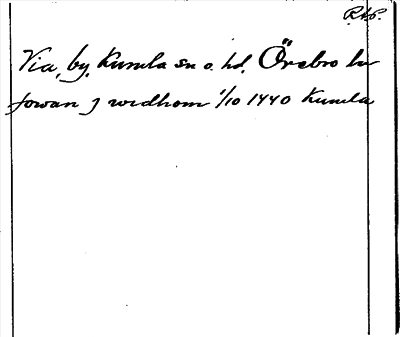 R.A.P.
Via, by, Kumla sn o. hd, Örebro ln
jowan j widhom 1/10 1440 Kumla